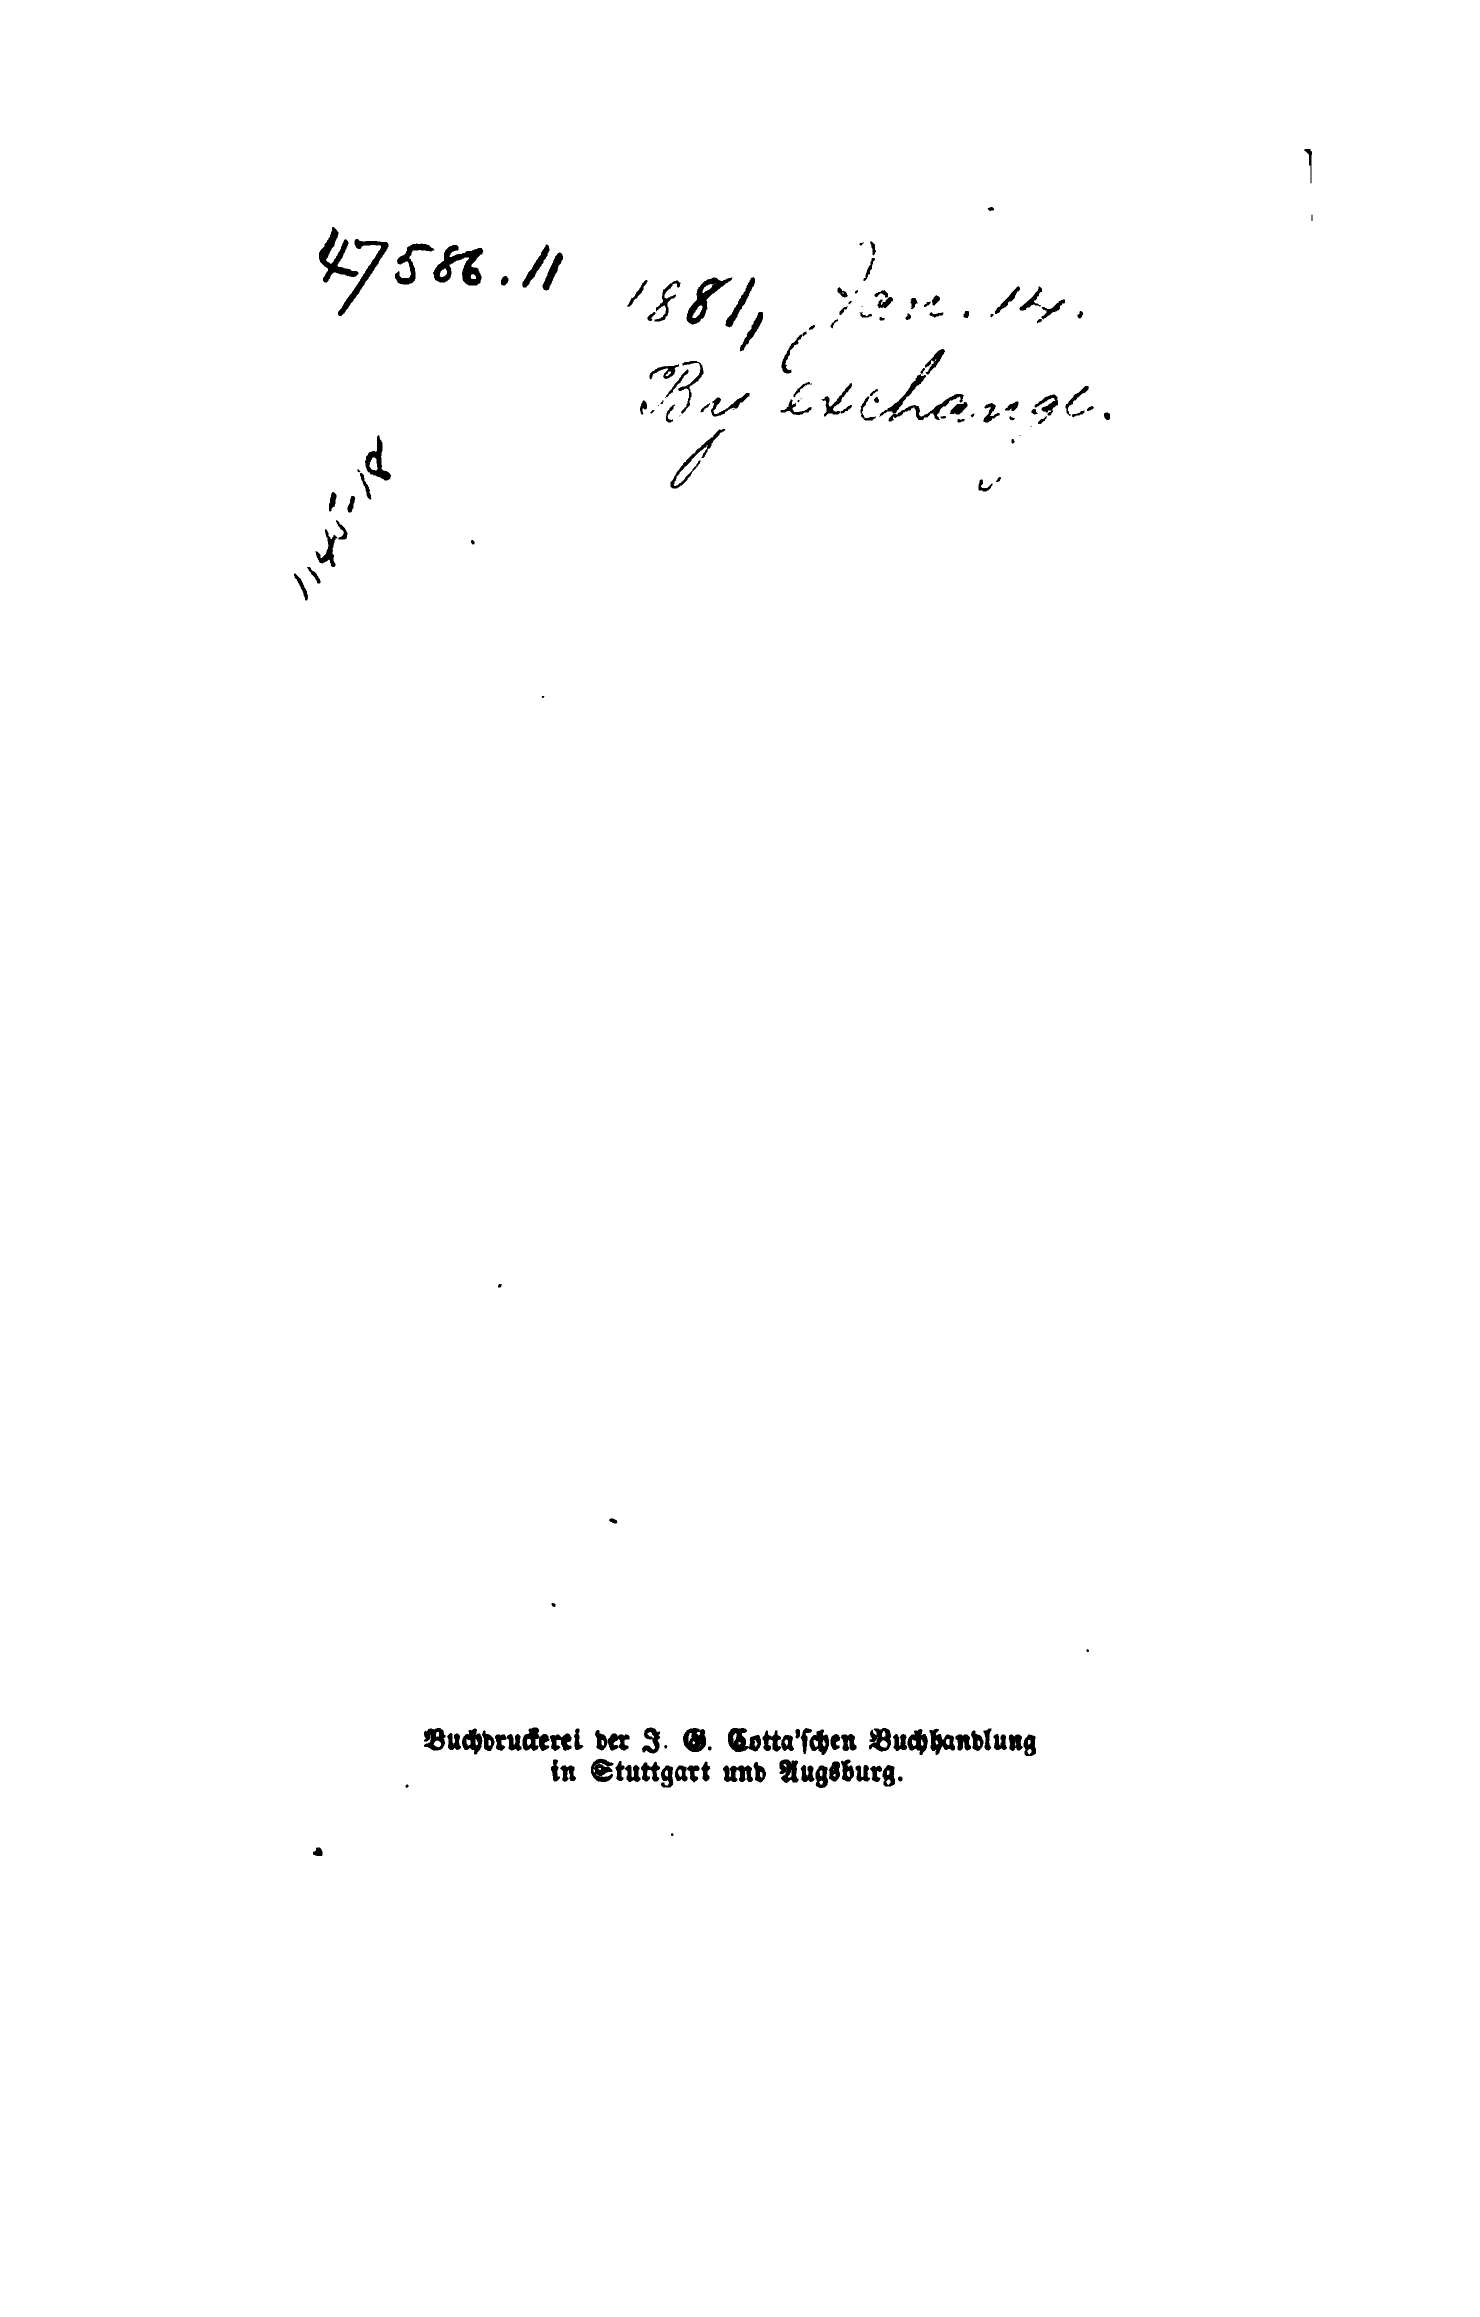 47586.11
1881, Jan. 14.
By exchange.
Buchdruckerei der J. G. Cotta'ſchen Buchhandlung
in Stuttgart und Augsburg.